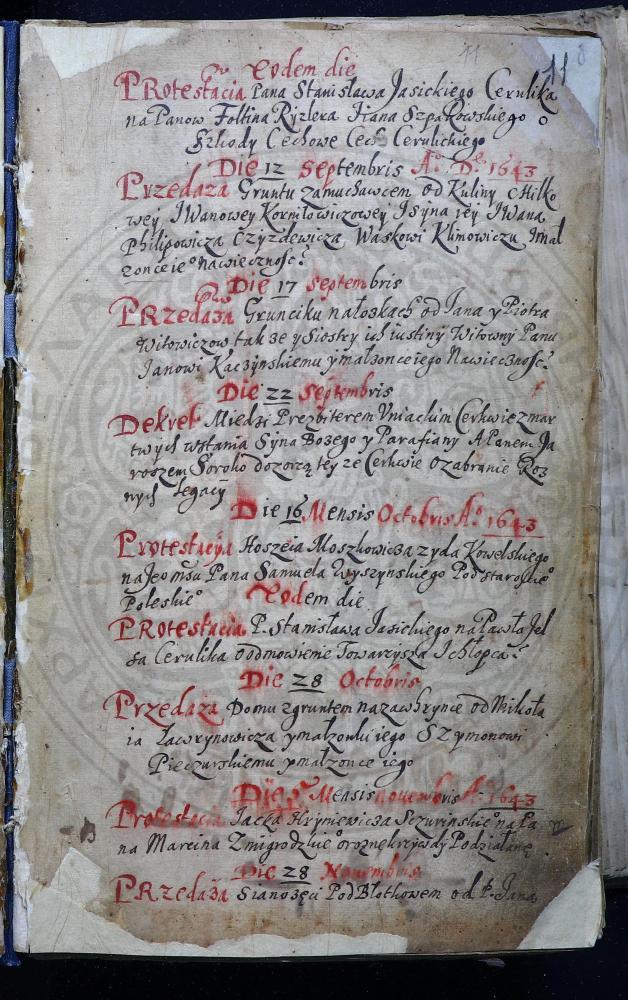 11
Eodem die
PRotestacia Pana Stanisława Jasickiego Cerulika
na Panow Foltina Ryzlera Jiana Szpakowskiego o
Szkody Cechowe Cech Cerulickiego
Die 12 Septembris A° D. 1643
Przedaza Gruntu zamuchawcem od Kuliny Chilko
wey IWanowey Kormłowiczowey Isyna iey IWana
Philipowicza Czyzdewicza Waskowi Klimowiczu ymał
zonce ie° nawiecznosc
Die 17 Septembris
PRzedaża Grunciku nałoskach od Jana y Piotra
Witowiczow takze y Siostry ich iustiny Witowny Panu
Janowi Kaczynskiemu ymałzonce iego Nawiecznosc
Die 22 Septembris
Dekret Miedzi Prezbiterem Vniackim Cerkwie zmar
twych wstania Syna Bozego y Parafiany A Panem Ja
roszem Soroko dozorcą tey ze Cerkwie ozabranie Roz
nych legacy
Die 16 Mensis Octobris A° 1643
Protestacyia Hoszeia Moszkowicza zyda Kowelskiego
na Jeo msu Pana Samuela Wyszynskiego Podstaroscie°
Poleskie°
Eodem die
PRotestacia P. Stanisława Jasickiego na Pawła Jel
sa Cerulika o odmowienie Towarzysza Ichłopca
Die 28 Octobris
Przedaza Domu zgruntem nazawhrynce od Mikoła
ia Ławrynowicza ymałzonki iego Szymonowi
Pieczurskiemu ymałzonce iego
Die Mensis novembris A° 1643
Protestacia Jacka Hryniewicza Szczurinskie° na Pa
na Marcina Zmigrodzkie° orozne krzywdy Podziałane
Die 28 Novembris
PRzedaża Sianozęci Pod Błotkowem od P. Jana